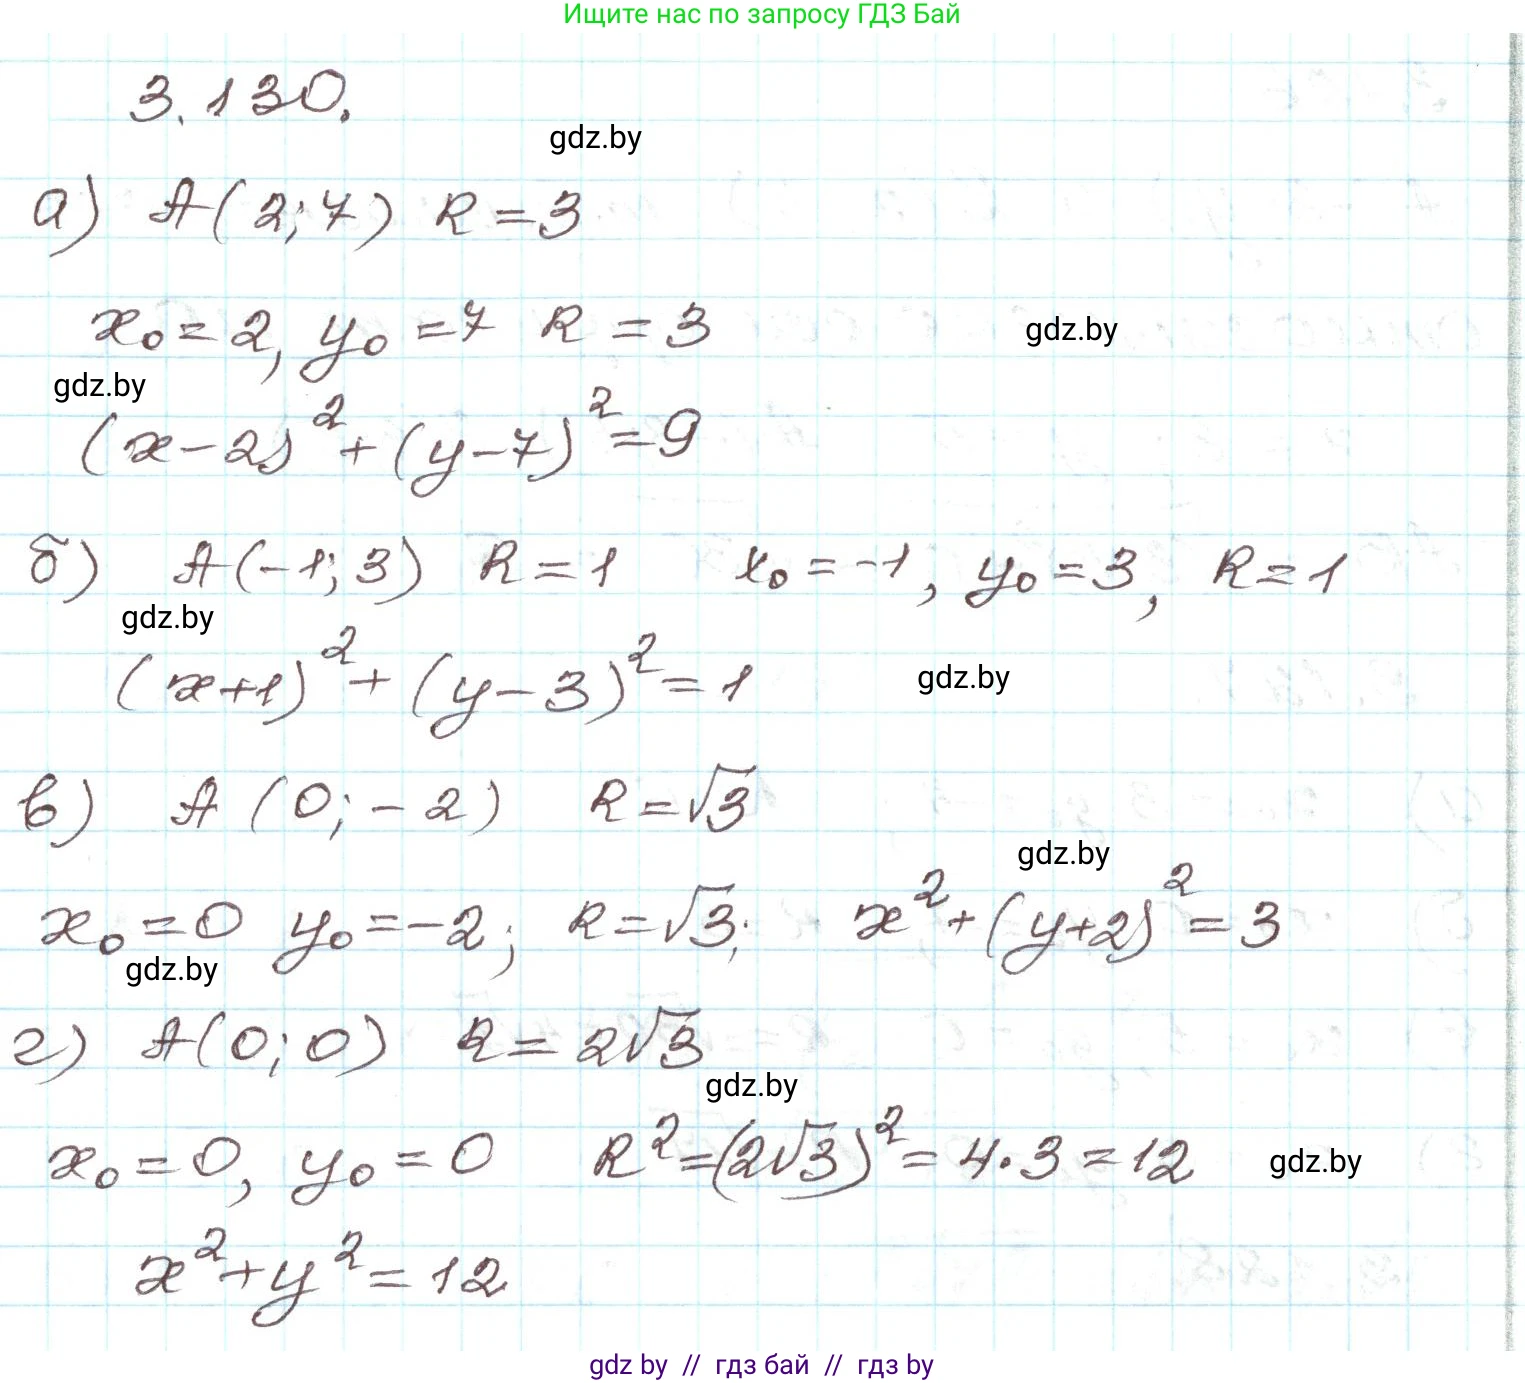 Ищите нас по запросу ГДЗ Бай
3.130.
gdz.by
а) A(2;7) R=3
x₀=2, y₀=7 R=3
gdz.by
gdz.by
(x-2)²+(y-7)²=9
б) A(-1;3) R=1 x₀=-1, y₀=3, R=1
gdz.by
(x+1)²+(y-3)²=1
gdz.by
в) A(0;-2) R=√3
gdz.by
x₀=0 y₀=-2; R=√3; x²+(y+2)²=3
gdz.by
г) A(0;0) R=2√3
gdz.by
x₀=0, y₀=0 R²=(2√3)²=4·3=12
gdz.by
x²+y²=12
gdz by // гдз бай // гдз by